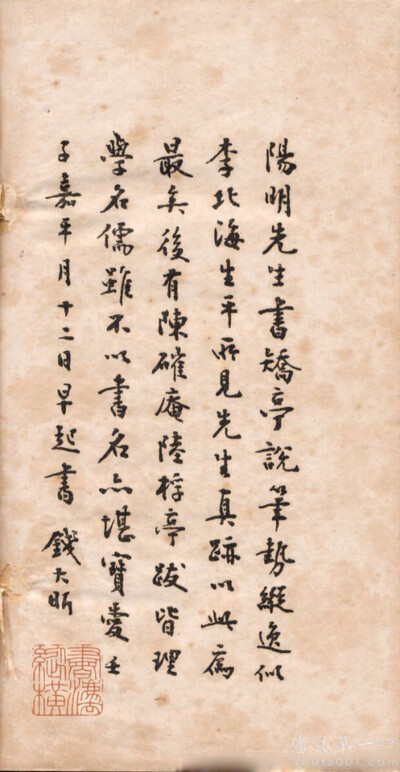 陽明先生書矯亭說筆勢縱逸似
李北海生平所見先生真跡以此為
最矣後有陳確庵陸桴亭跋皆理
學名儒雖不以書名亦堪寶愛壬
子嘉平月十二日早起書 錢大昕